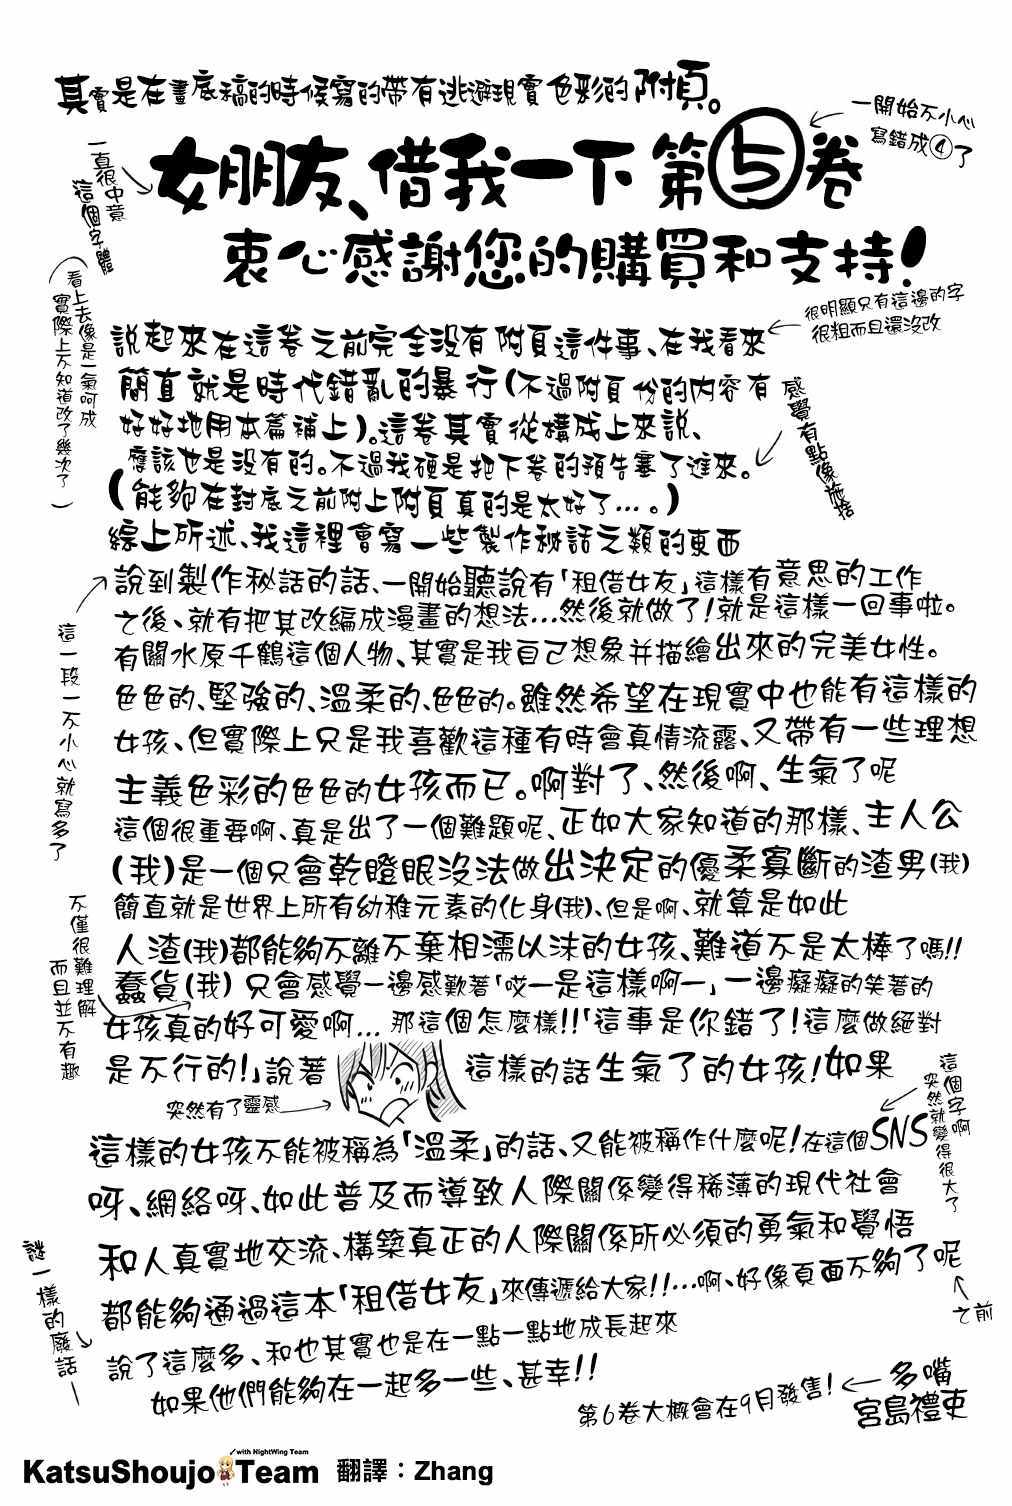 其實是在畫底稿的時候寫的帶有逃避現實色彩的附頁。
一開始不小心
寫錯成④了
一直很中意
這個字體
女朋友、借我一下 第5卷
衷心感謝您的購買和支持!
看上去像是一氣呵成
實際上不知道改了幾次了
很明顯只有這邊的字
很粗而且還沒改
說起來在這卷之前完全沒有附頁這件事、在我看來
簡直就是時代錯亂的暴行(不過附頁份的內容有
好好地用本篇補上)。這卷其實從構成上來說、
應該也是沒有的。不過我硬是把下卷的預告塞了進來。
(能夠在封底之前附上附頁真的是太好了…。)
感覺有點像施捨
綜上所述、我這裡會寫一些製作秘話之類的東西
說到製作秘話的話、一開始聽說有「租借女友」這樣有意思的工作
之後、就有把其改編成漫畫的想法…然後就做了!就是這樣一回事啦。
有關水原千鶴這個人物、其實是我自己想象并描繪出來的完美女性。
色色的、堅強的、溫柔的、色色的。雖然希望在現實中也能有這樣的
女孩、但實際上只是我喜歡這種有時會真情流露、又帶有一些理想
主義色彩的色色的女孩而已。啊對了、然後啊、生氣了呢
這個很重要啊、真是出了一個難題呢、正如大家知道的那樣、主人公
(我)是一個只會乾瞪眼沒法做出決定的優柔寡斷的渣男(我)
簡直就是世界上所有幼稚元素的化身(我)、但是啊、就算是如此
人渣(我)都能夠不離不棄相濡以沫的女孩、難道不是太棒了嗎!!
蠢貨(我) 只會感覺一邊感歎著「哎一是這樣啊一」一邊癡癡的笑著的
女孩真的好可愛啊… 那這個怎麼樣!!「這事是你錯了!這麼做絕對
是不行的!」說著 這樣的話生氣了的女孩!如果
這一段一不小心就寫多了
不僅很難理解
而且並不有趣
突然有了靈感
這個字啊
突然就變得很大了
這樣的女孩不能被稱為「溫柔」的話、又能被稱作什麼呢!在這個SNS
呀、網絡呀、如此普及而導致人際關係變得稀薄的現代社會
和人真實地交流、構築真正的人際關係所必須的勇氣和覺悟
都能夠通過這本「租借女友」來傳遞給大家!!…啊、好像頁面不夠了呢
之前
謎一樣的廢話一
說了這麼多、和也其實也是在一點一點地成長起來
如果他們能夠在一起多一些、甚幸!!
第6卷大概會在9月發售!
多嘴
宮島禮吏
with NightWing Team
KatsuShoujo Team 翻譯：Zhang